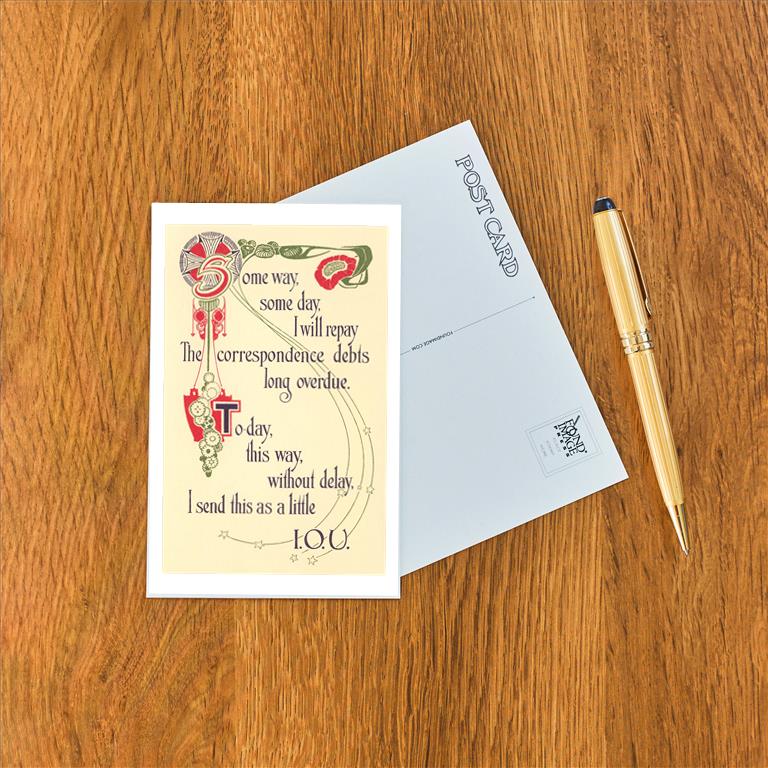 Some way,
some day,
I will repay
The correspondence debts
long overdue.
To-day,
this way,
without delay,
I send this as a little
I.O.U.
POST CARD
FOUNDIMAGE.COM
FOUND
IMAGE
PRESS